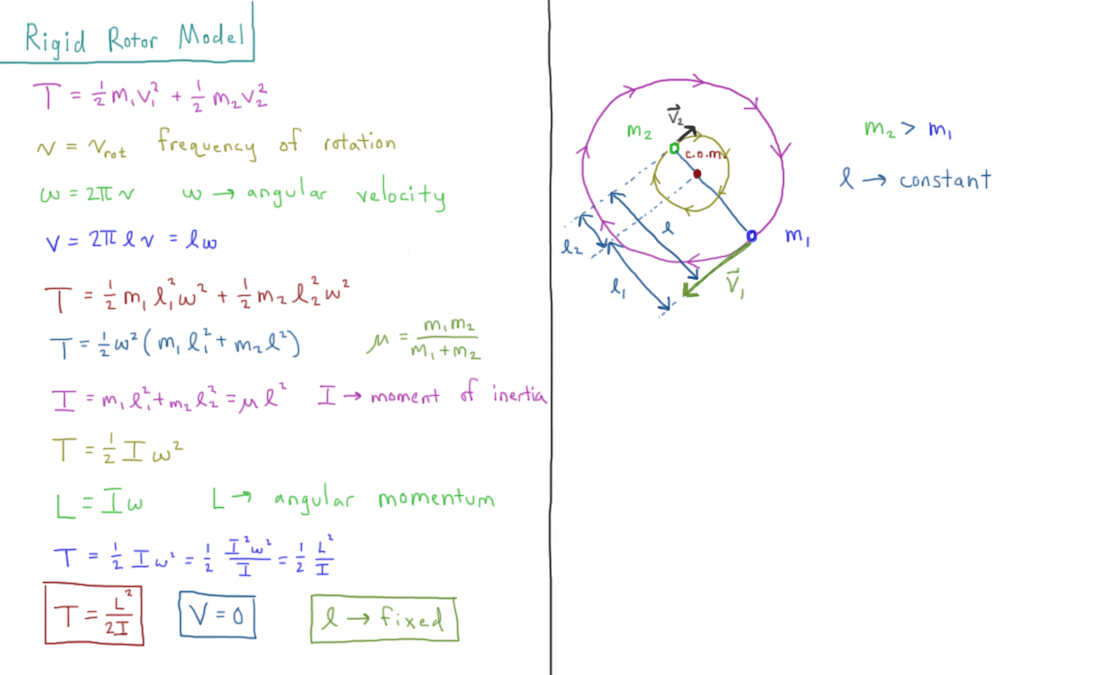 Rigid Rotor Model
T = ½m₁v₁² + ½m₂v₂²
ν = ν_rot frequency of rotation
ω = 2πν ω → angular velocity
v = 2πlν = lω
T = ½m₁l₁²ω² + ½m₂l₂²ω²
T = ½ω²(m₁l₁² + m₂l²) μ = m₁m₂/(m₁+m₂)
I = m₁l₁² + m₂l₂² = μl² I → moment of inertia
T = ½Iω²
L = Iω L → angular momentum
T = ½Iω² = ½ I²ω²/I = ½ L²/I
T = L²/2I V = 0 l → fixed
v⃗₂
m₂
c.o.m
l
l₂
l₁
m₁
v⃗₁
m₂ > m₁
l → constant